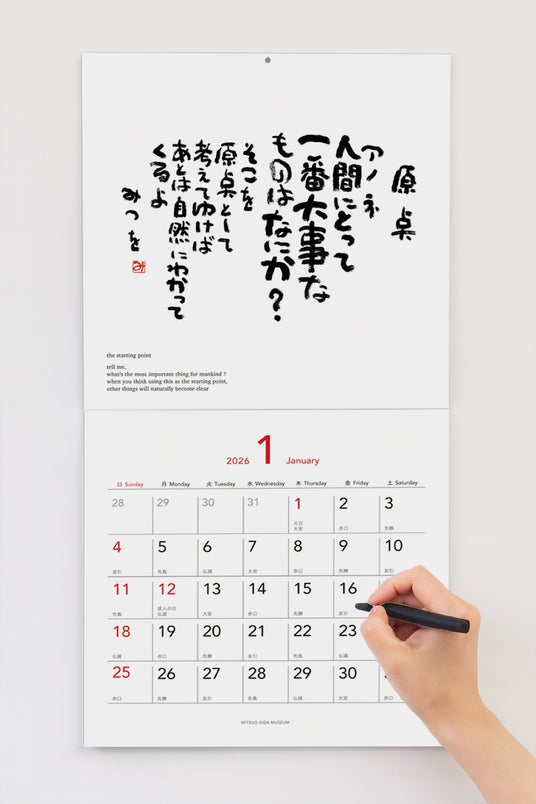 原点
アノネ
人間にとって
一番大事な
ものはなにか?
そこを
原点として
考えてゆけば
あとは自然にわかって
くるよ
みつを
the starting point
tell me,
what's the most important thing for mankind ?
when you think using this as the starting point,
other things will naturally become clear
2026 1 January
日 Sunday 月 Monday 火 Tuesday 水 Wednesday 木 Thursday 金 Friday 土 Saturday
28 29 30 31 1 2 3
元日
大安 赤口 先勝
4 5 6 7 8 9 10
友引 先負 仏滅 大安 赤口 先勝 友引
11 12 13 14 15 16
成人の日
先負 仏滅 大安 赤口 先勝 友引
18 19 20 21 22 23
仏滅 赤口 先勝 友引 先負 仏滅
25 26 27 28 29 30
赤口 先勝 友引 先負 仏滅 大安
MITSUO AIDA MUSEUM